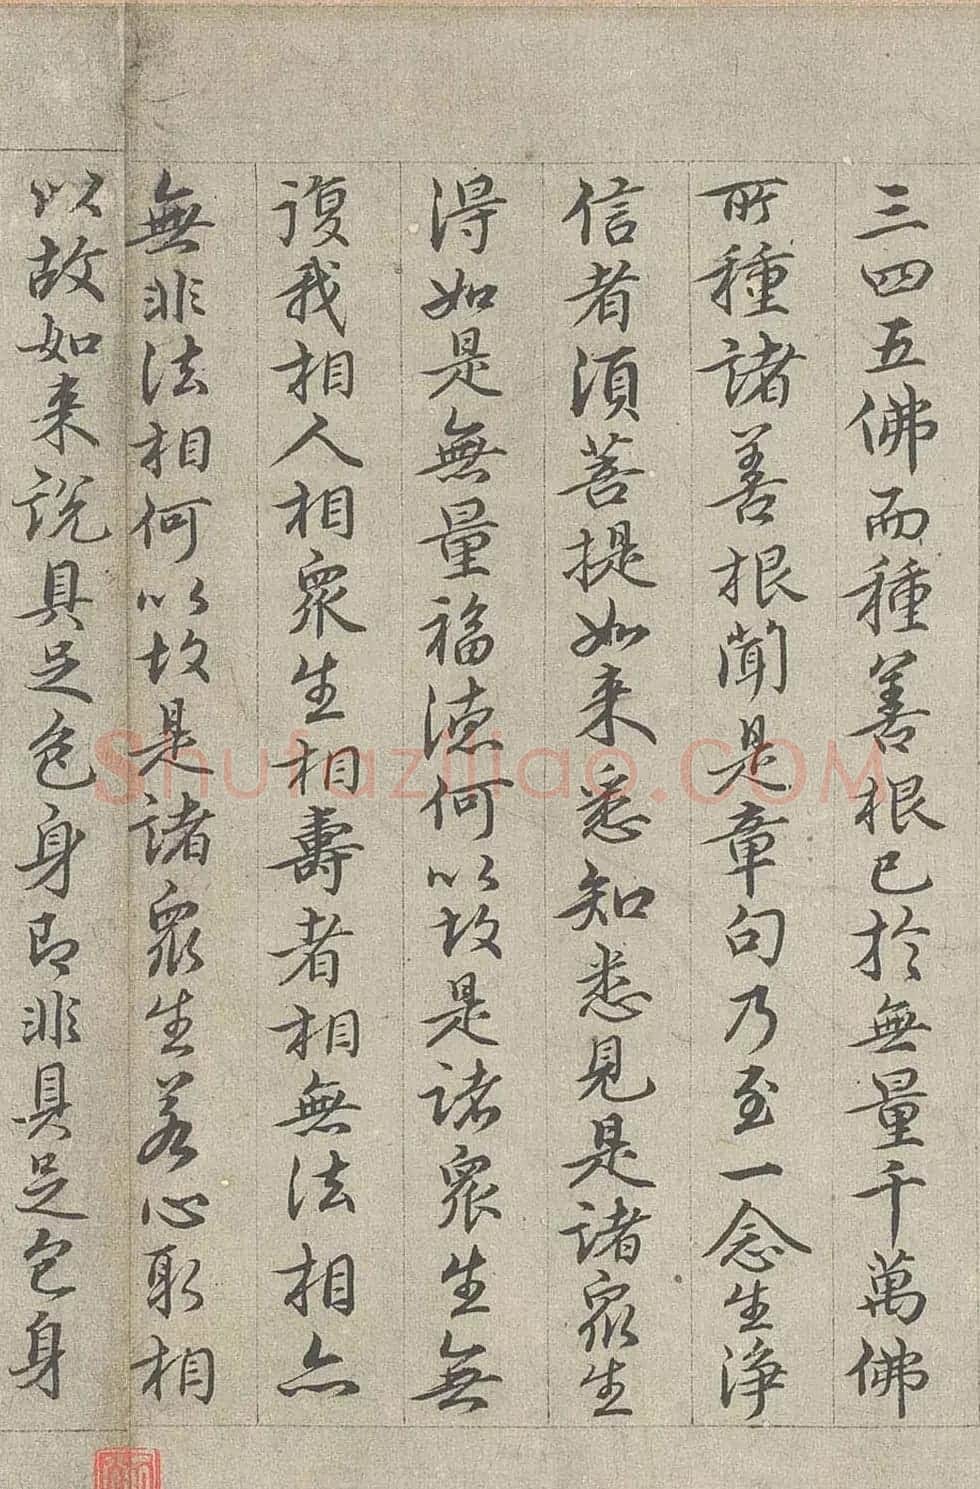 三四五佛而種善根已於無量千萬佛
所種諸善根聞是章句乃至一念生淨
信者須菩提如来悉知悉見是諸眾生
得如是無量福德何以故是諸眾生無
復我相人相眾生相壽者相無法相亦
無非法相何以故是諸眾生若心取相
以故如来說具足色身即非具足色身
Shufaziliao.COM